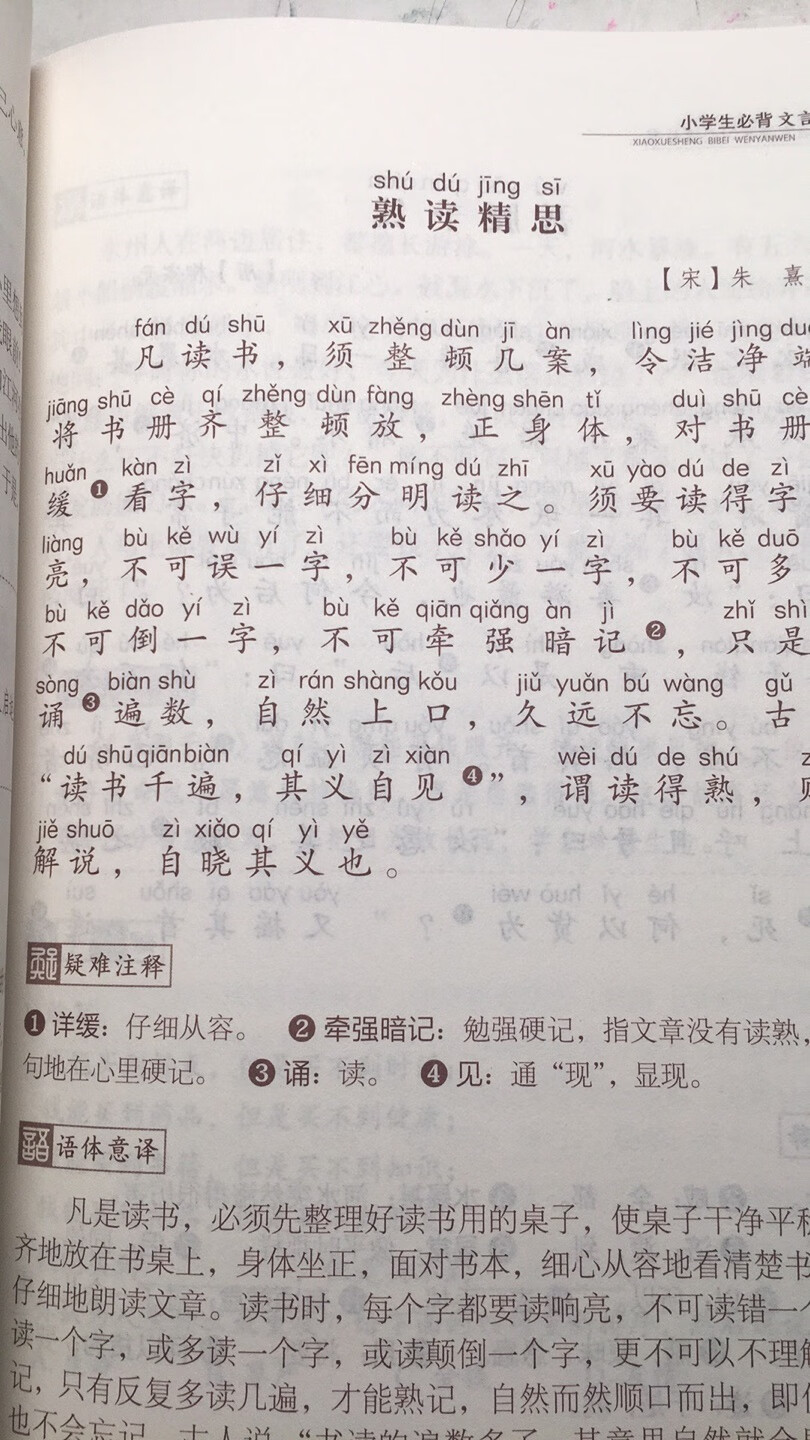 小学生必背 文言
XIAOXUESHENG BIBEI WENYANWEN
shú dú jīng sī
熟读精思
【宋】朱 熹
fán dú shū xū zhěng dùn jī àn lìng jié jìng
凡读书，须整顿几案，令洁净端
jiāng shū cè qí zhěng dùn fàng zhèng shēn tǐ duì shū cè
将书册齐整顿放，正身体，对书册
huǎn kàn zì zǐ xì fēn míng dú zhī xū yào dú de zì
缓❶看字，仔细分明读之。须要读得字
liàng bù kě wù yí zì bù kě shǎo yí zì bù kě duō
亮，不可误一字，不可少一字，不可多
bù kě dǎo yí zì bù kě qiān qiǎng àn jì zhǐ shì
不可倒一字，不可牵强暗记❷，只是
sòng biàn shù zì rán shàng kǒu jiǔ yuǎn bú wàng gǔ
诵❸遍数，自然上口，久远不忘。古
dú shū qiān biàn qí yì zì xiàn wèi dú de shú
“读书千遍，其义自见❹”，谓读得熟，
jiě shuō zì xiǎo qí yì yě
解说，自晓其义也。
疑难注释
❶详缓：仔细从容。 ❷牵强暗记：勉强硬记，指文章没有读熟，
句地在心里硬记。 ❸诵：读。 ❹见：通“现”，显现。
语体意译
凡是读书，必须先整理好读书用的桌子，使桌子干净平稳
齐地放在书桌上，身体坐正，面对书本，细心从容地看清楚书
仔细地朗读文章。读书时，每个字都要读响亮，不可读错一个
读一个字，或多读一个字，或读颠倒一个字，更不可以不理解
记，只有反复多读几遍，才能熟记，自然而然顺口而出，即使
也不会忘记。古人说：“书读的遍数多了，其意思自然就会